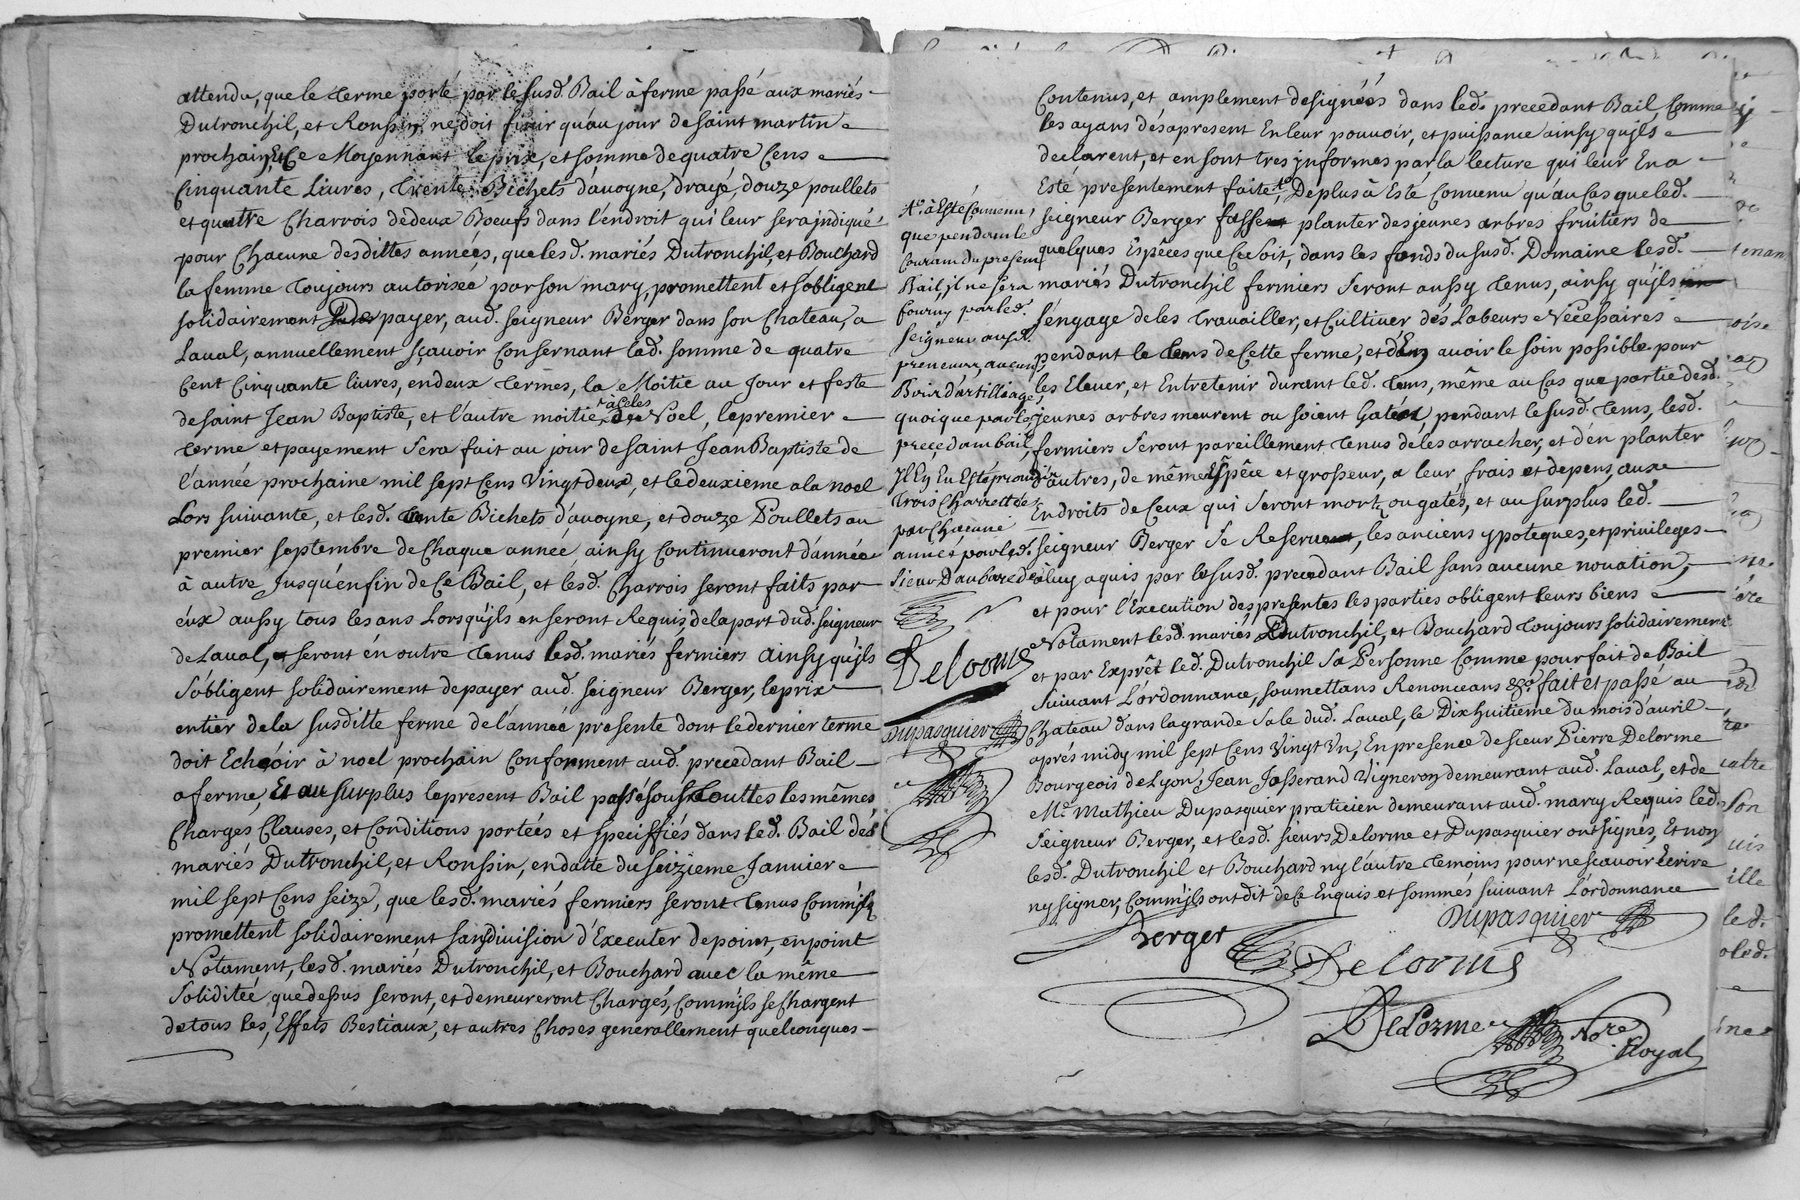 attendu, que le terme porté par le susd. Bail à ferme passé aux mariés
Dutronchil, et Ronssin, ne doit finir qu'au jour de saint martin
prochain, Et Ce Moyennant le prix, et somme de quatre Cens
Cinquante Livres, trente Bichets d'avoyne, drayé, douze poullets
et quatre Charrois de deux Boeufs dans l'endroit qui leur sera jndiqué
pour Chacune desdittes années, que lesd. mariés Dutronchil, et Bouchard
la femme toujours autorisée par son mary, promettent et s'obligent
solidairement payer, aud. seigneur Berger dans son Chateau, a
Laval, annuellement sçavoir Consernant lad. somme de quatre
Cent Cinquante livres, en deux termes, la Moitie au Jour et feste
de saint Jean Baptiste, et l'autre moitie, à Celes de Noel, le premier
terme et payement Sera fait au jour de saint Jean Baptiste de
l'année prochaine mil sept Cens Vingt deux, et le deuxieme a la noel
Lors suivante, et lesd. trente Bichets d'avoyne, et douze Poullets au
premier septembre de Chaque année ainsy Continueront d'année
à autre Jusqu'en fin de Ce Bail, et lesd. Charrois seront faits par
éux aussy tous les ans Lorsqu'jls en seront Requis de la part dud. seigneur
de Laval, et seront én outre tenus lesd. mariés fermiers ainsy qu'jls
s'obligent solidairement de payer aud. seigneur Berger, le prix
entier de la susditte ferme de l'année presente dont le dernier terme
doit Echeoir à noel prochain Conforment aud. precedant Bail
a ferme, Et au surplus le present Bail passé sous touttes les mêmes
Charges Clauses, et Conditions portées et speciffiés dans led. Bail dés
mariés Dutronchil, et Ronssin, en datte du seizieme Janvier
mil sept Cens seize, que lesd. mariés fermiers seront tenus Comm'jls
promettent solidairement sans division d'Executer de point, en point
Notament, lesd. mariés Dutronchil, et Bouchard avec la même
Soliditée que dessus seront, et demeureront Chargés, Comm'jls se Chargent
de tous les, Effets Bestiaux, et autres Choses generallement quelconques
Contenus, et amplement designéés dans led. precedant Bail, Comme
les ayans dés apresent En leur pouvoir, et puissance ainsy qu'jls
declarent, et en sont tres jnformes par la lecture qui leur En a
Esté presentement faite, De plus à Esté Convenu qu'au Cas que led.
seigneur Berger fasse planter des jeunes arbres fruitiers de
quelques Espêces que Ce soit, dans les fonds du susd. Domaine lesd.
mariés Dutronchil fermiers seront aussy tenus, ainsy qu'jls
s'éngage de les travailler, et Cultiver dés Labeurs Necessaires
pendant le tems de Cette ferme, et d'En avoir le soin possible pour
les Elever, et Entretenir durant led. tems, même au Cas que partie desd.
jeunes arbres meurent ou soient Gatés, pendant le susd. tems, lesd.
fermiers seront pareillement tenus de les arracher, et d'en planter
d'autres, de même Espêce et grosseur, a leur frais et depens, aux
Endroits de Ceux qui seront mort, ou gatés, et au surplus led.
seigneur Berger se Reserve, les anciens ypoteques, et privileges
à luy aquis par le susd. precedant Bail sans aucune novation,
et pour l'Execution des presentes les parties obligent leurs biens
Notament lesd. mariés Dutronchil, et Bouchard toujours solidairement
et par Exprêt led. Dutronchil sa Personne Comme pour fait de Bail
suivant L'ordonnance, soumettans Renonceans &a. fait et passé au
Chateau dans la grande Sale dud. Laval, le Dix huitieme du mois d'avril
aprés midy mil sept Cens Vingt Un, En presence de sieur Pierre Delorme
Bourgeois de Lyon, Jean Josserand Vigneron demeurant aud. Laval, et de
Me. Mathieu Dupasquier praticien demeurant aud. marcy Requis led.
seigneur Berger, et lesd. sieurs Delorme et Dupasquier ont signés, Et non
lesd. Dutronchil et Bouchard ny l'autre temoins pour ne sçavoir Ecrire
ny signer, Comm'jls ont dit de Ce Enquis et sommés suivant L'ordonnance
à Esté Convenu,
que pendant le
Courant du present
Bail, jl ne sera
fourny par led.
seigneur ausd.
preneurs aucuns
Bois d'artilliage,
quoique par le
precedant bail,
Jl Ey En Esté promis
trois Charrettées
par Chacune
année par led.
sieur Daubarede
Delorme
Dupasquier
Berger
Delorme
Dupasquier
Delorme Nore.
Royal